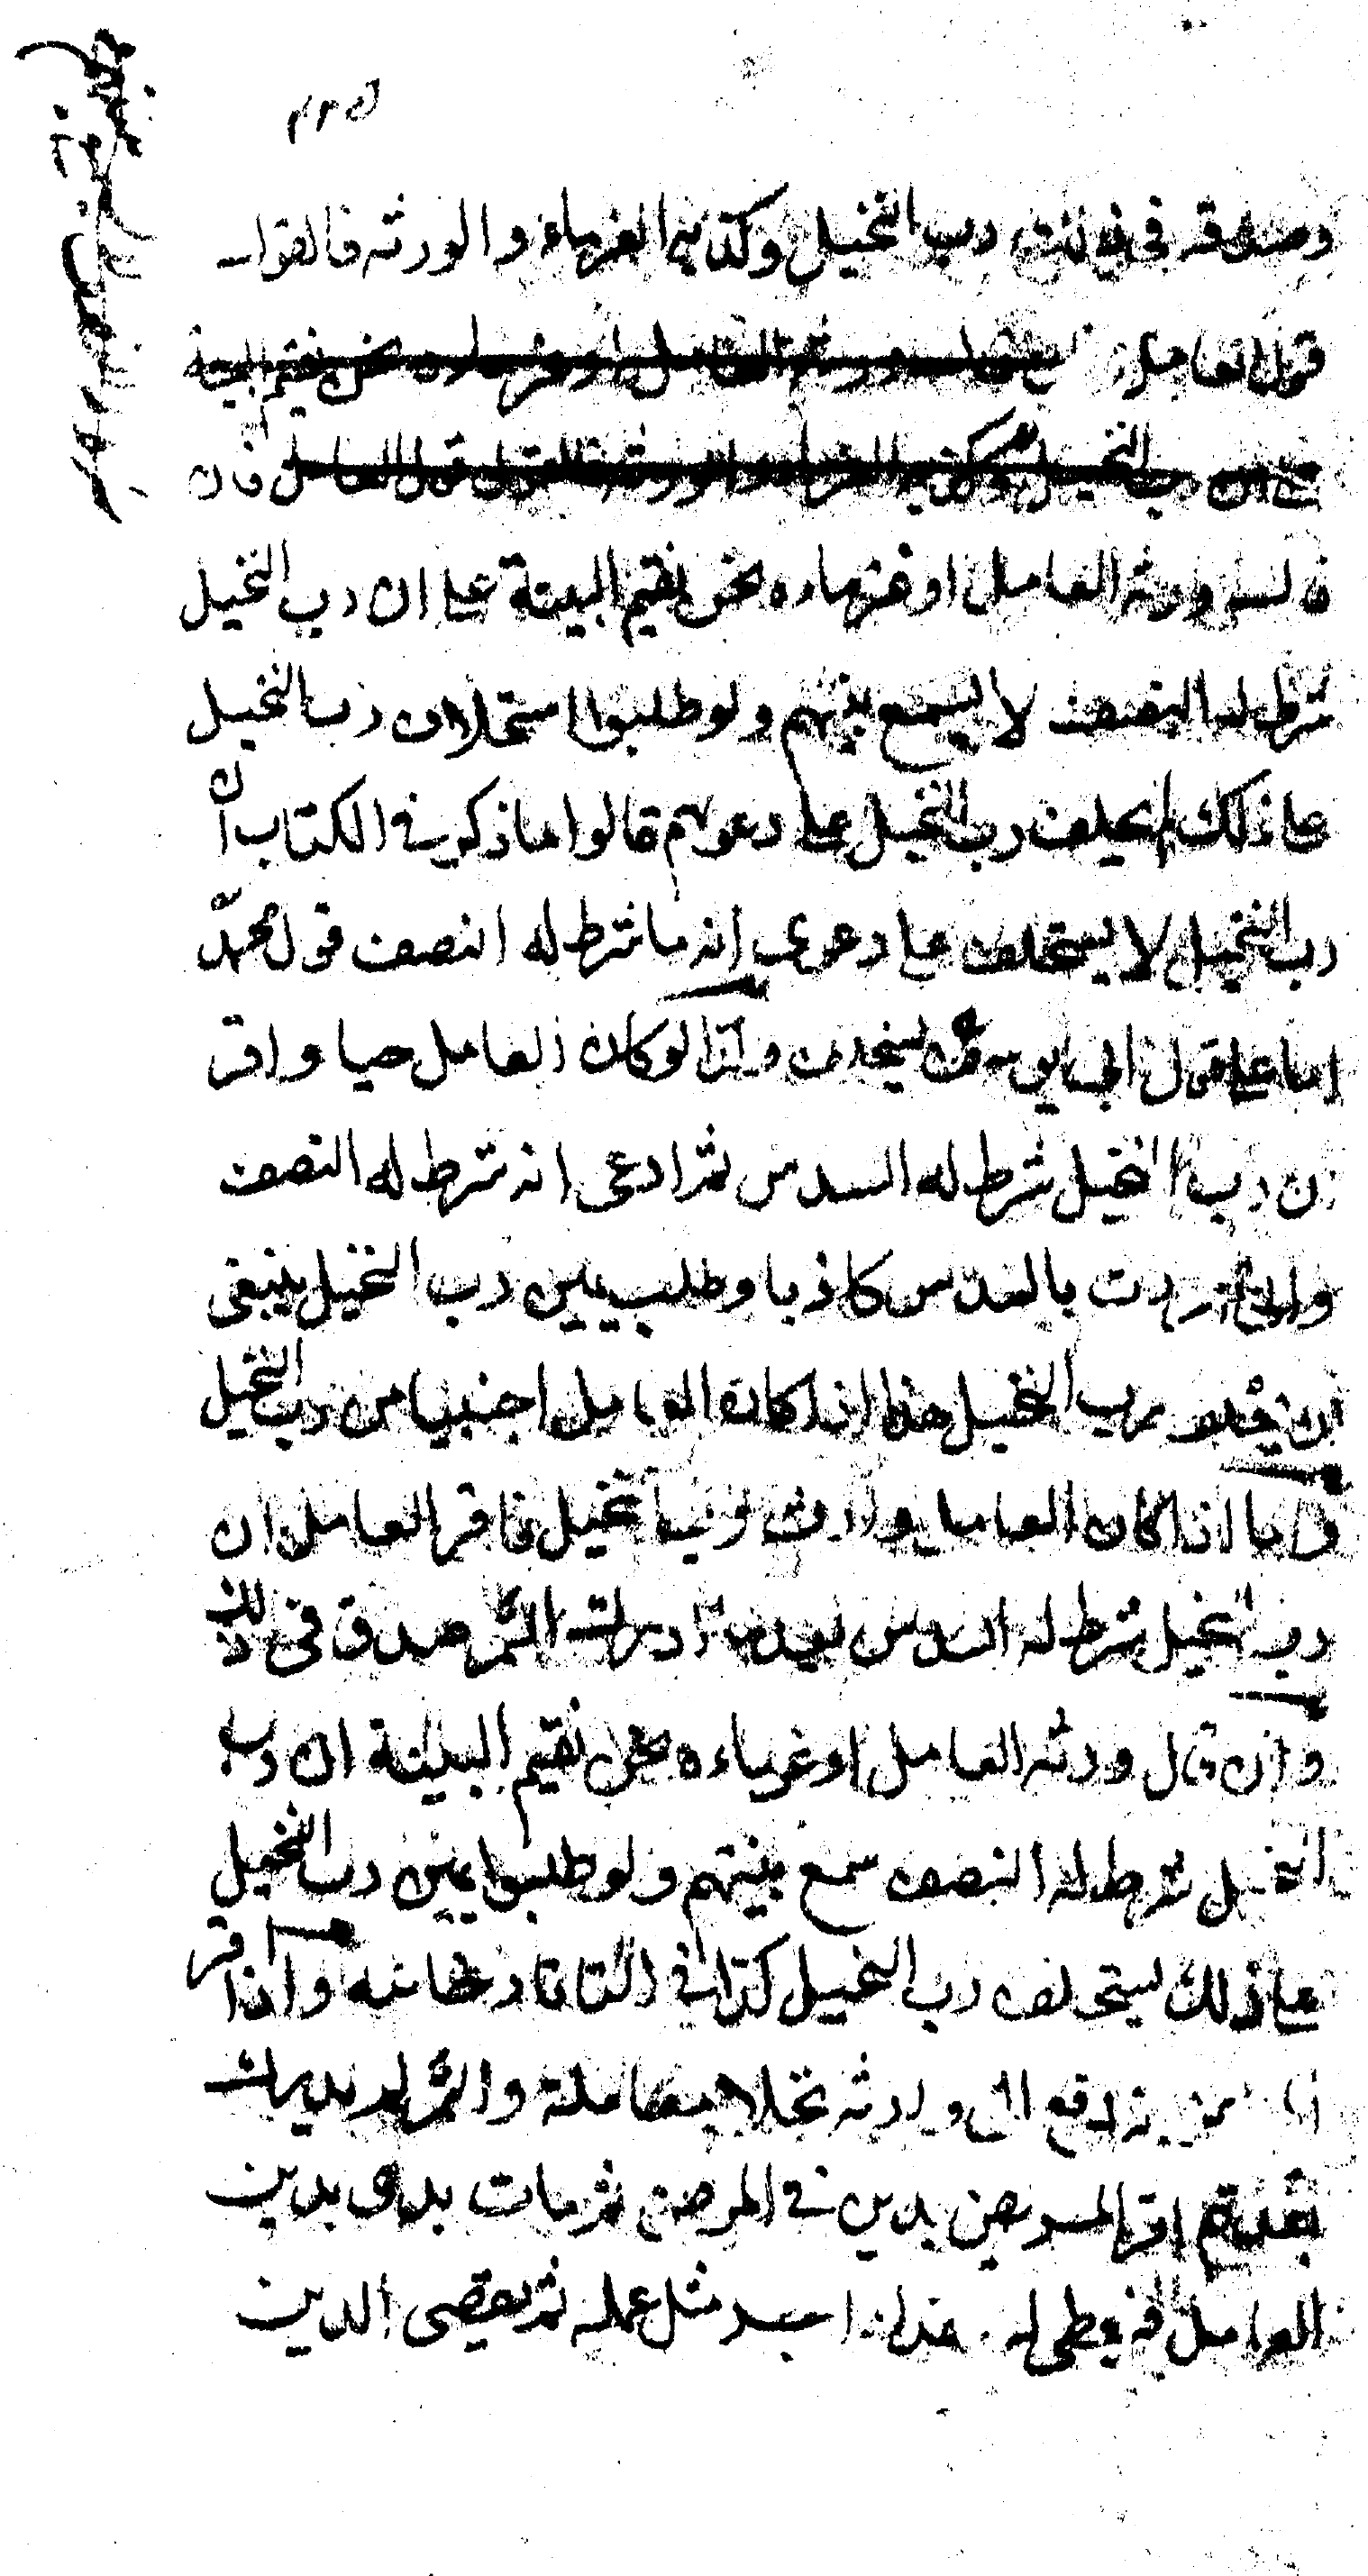 ٢٣٥
وصدقه في ذلك رب النخيل وكذبه الغرماء والورثه فالقول
قول العامل
فان
قالت ورثه العامل او غرماءه نحن نقيم البينة على ان رب النخيل
شرط له النصف لا يسمع بينتهم ولو طلبوا استحلاف رب النخيل
على ذلك لم يحلف رب النخيل على دعويهم قالوا ما ذكر في الكتاب ان
رب النخيل لا يستحلف على دعوى انه ما شرط له النصف قول محمد
اما على قول ابي يوسف يستحلف وكذا لو كان العامل حيا واقر
ان رب النخيل شرط له السدس ثم ادعى انه شرط له النصف
واني اقررت بالسدس كاذبا وطلب يمين رب النخيل ينبغي
ان يحلف رب النخيل هذا اذا كان العامل اجنبيا من رب النخيل
واما اذا كان العامل وارث رب النخيل فاقر العامل ان
رب النخيل شرط له السدس بعد ما ادرك الثمر صدق في ذلك
وان قال ورثه العامل او غرماءه نحن نقيم البينة ان رب
النخيل شرط له النصف سمع بينتهم ولو طلبوا يمين رب النخيل
على ذلك يستحلف رب النخيل كذا في التاتارخانيه واذا اقر
دفع الى وارثه نخلا معاملة والثمر لم يدرك
اقر المريض بدين في المرض ثم مات بدى بدين
العامل فيعطى له مثل عمله ثم يقضى الدين